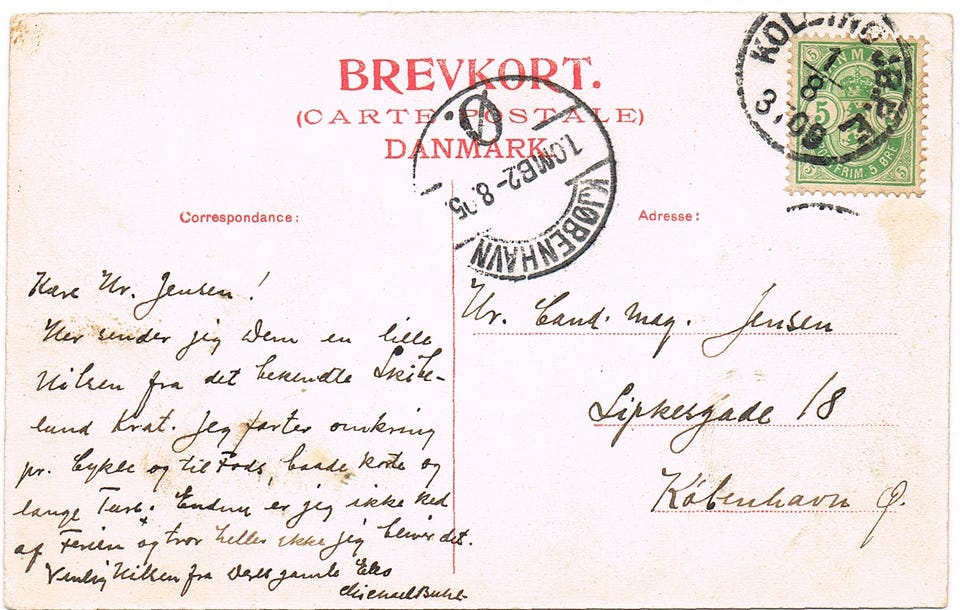 BREVKORT.
(CARTE POSTALE)
DANMARK.
KOLDING
1/8
5
5 ØRE
KJØBENHAVN
Ø
1.OMB.2-8.05.
Correspondance:
Kære Hr. Jensen!
Her sender jig Dem en lille
Hilsen fra det bekendte Skibe-
lund Krat. Jeg farter omkring
pr. Cykle og til Fods, baade korte og
lange Ture. Endnu er jeg ikke ked
af Ferien og tror heller ikke jeg bliver det.
Venlig Hilsen fra Deres gamle Elev
Michael Buhl
Adresse:
Hr. Cand. mag. Jensen
Lipkesgade 18
København Ø.